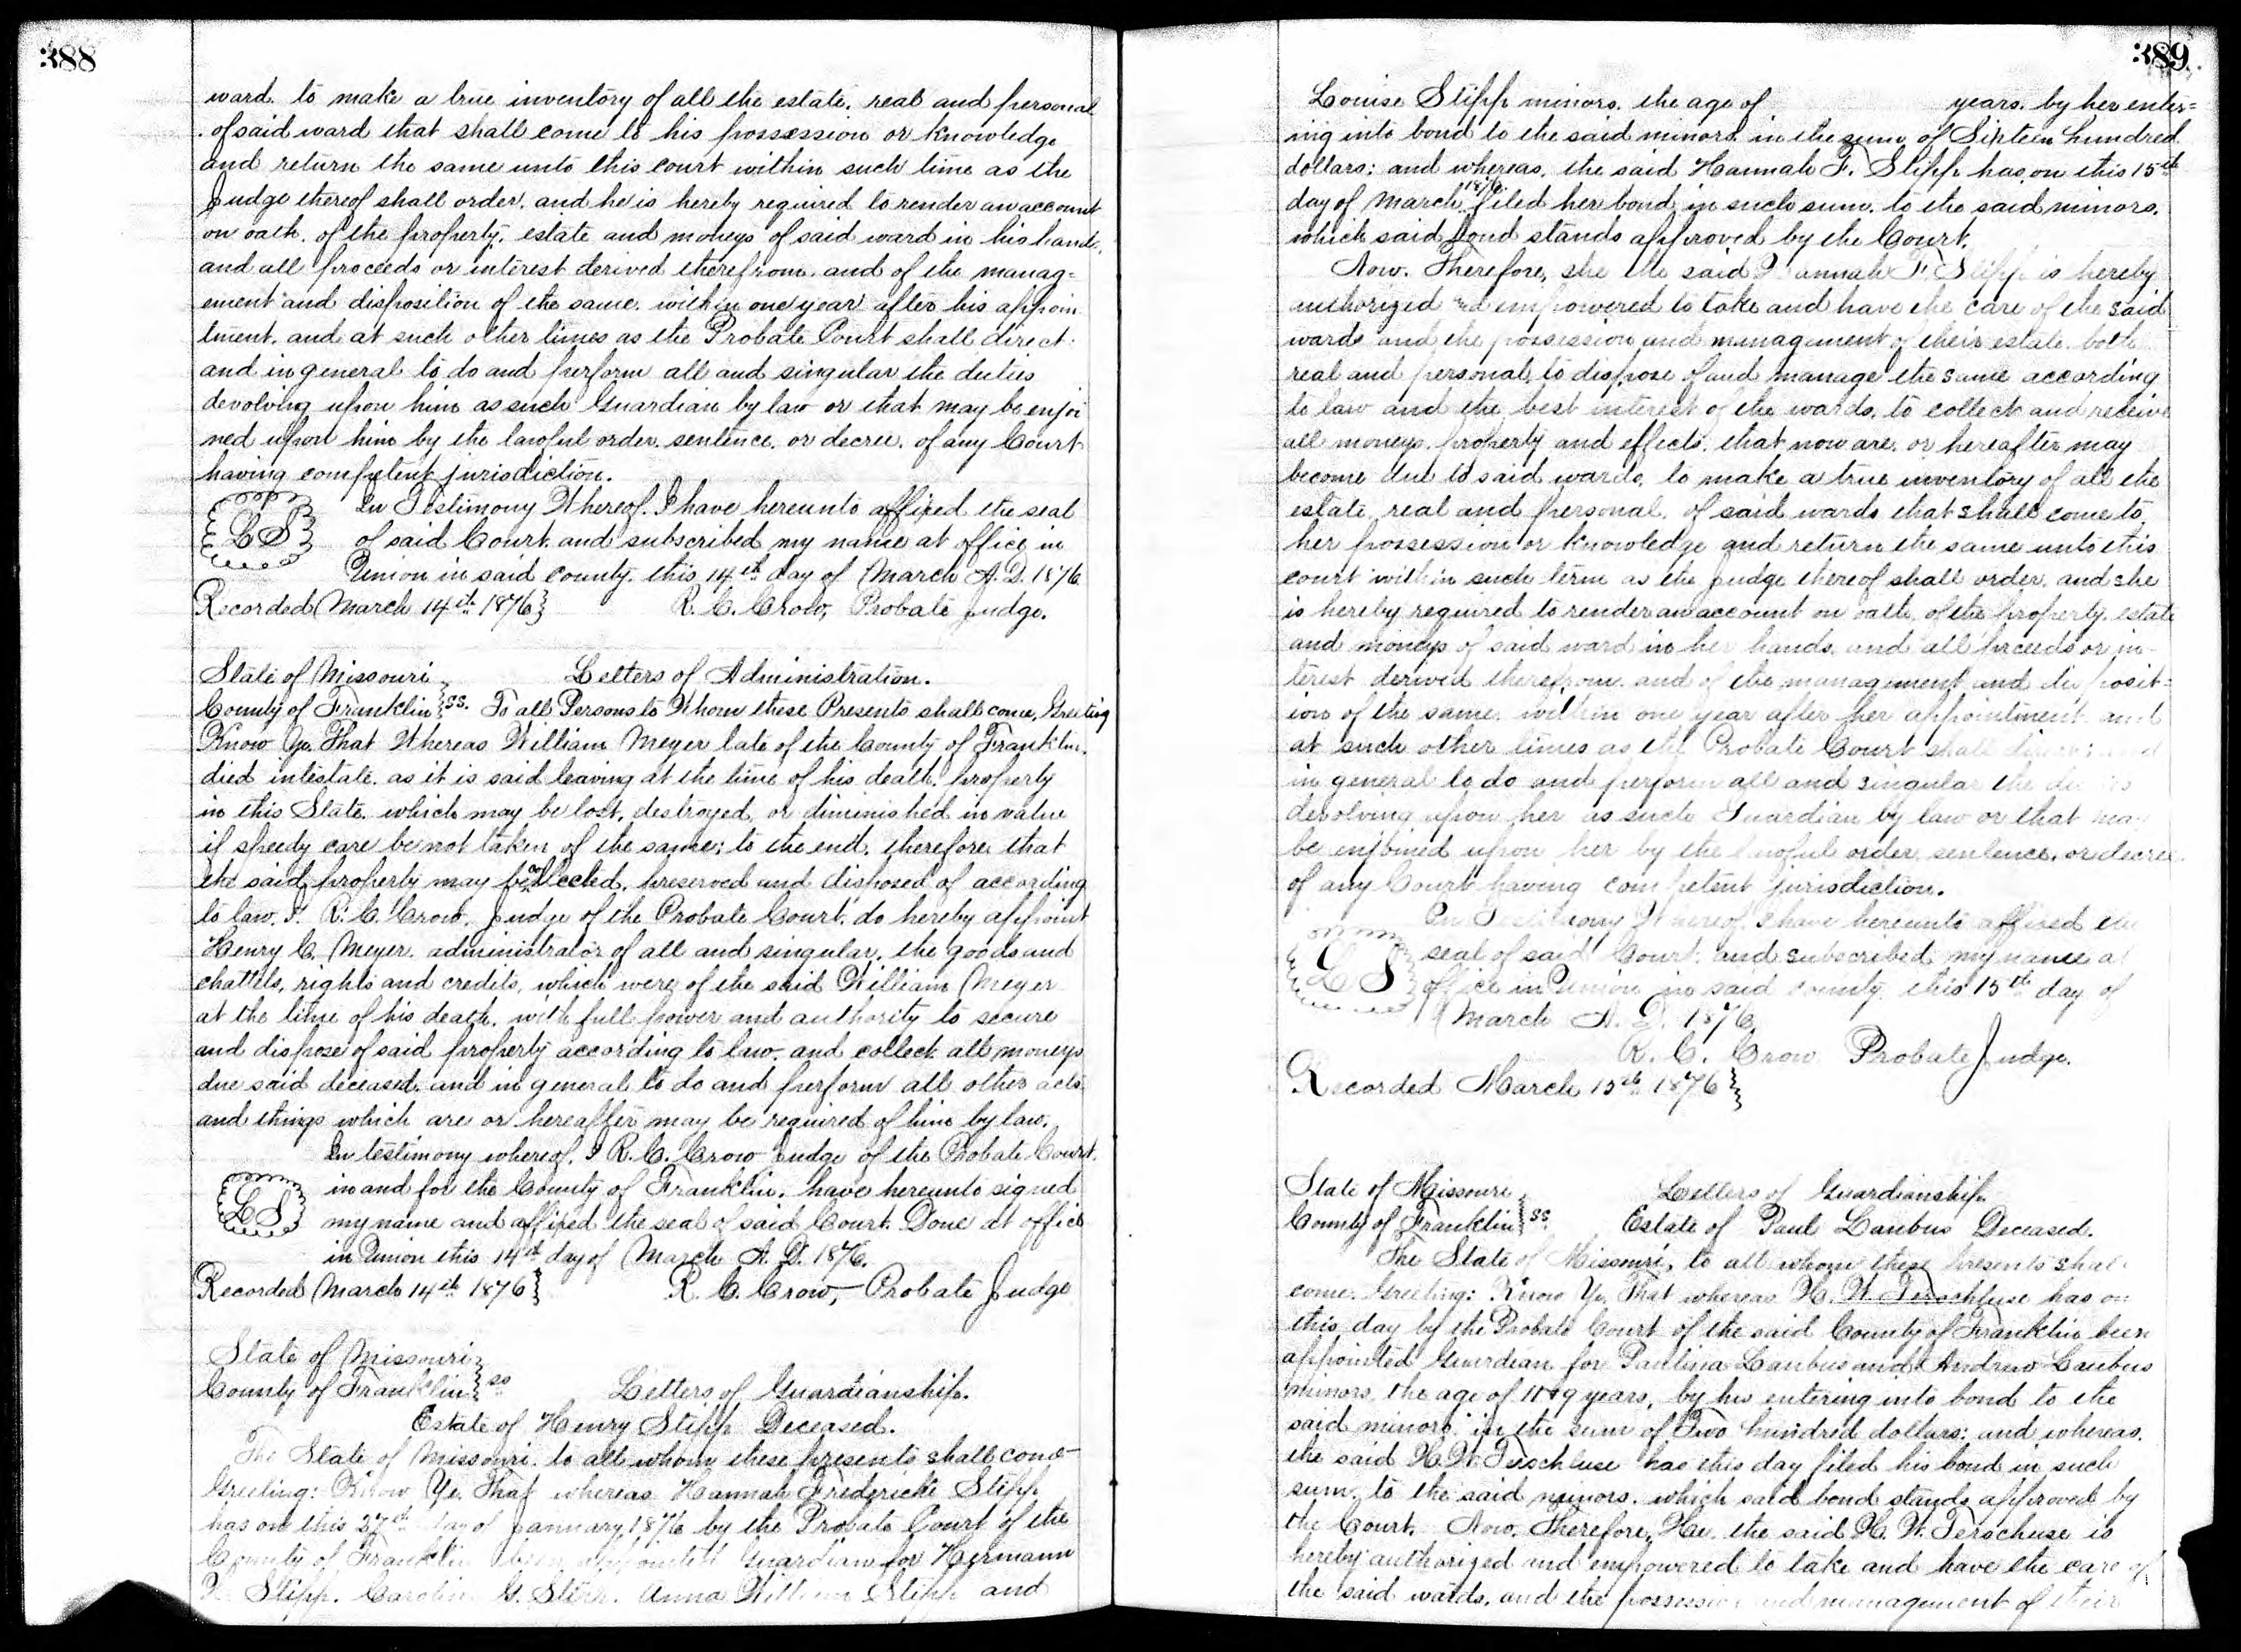 388
ward. to make a true inventory of all the estate, real and personal
of said ward that shall come to his possession or knowledge
and return the same unto this court within such time as the
Judge thereof shall order, and he is hereby required to render an account
on oath, of the property, estate and moneys of said ward in his hands,
and all proceeds or interest derived therefrom, and of the manag=
ement and disposition of the same, within one year after his appoin
tment, and at such other times as the Probate Court shall direct:
and in general to do and perform all and singular the duties
devolving upon him as such Guardian by law or that may be enjoi
ned upon him by the lawful order, sentence, or decree, of any Court
having competent jurisdiction.
In Testimony Whereof, I have hereunto affixed the seal
L S of said Court, and subscribed my name at office in
Union in said county, this 14th day of March A. D. 1876
Recorded March 14th 1876 R. C. Crow, Probate Judge.
State of Missouri Letters of Administration.
County of Franklin ss. To all Persons to Whom these Presents shall come, Greeting
Know Ye, That Whereas William Meyer late of the County of Franklin,
died intestate, as it is said leaving at the time of his death, property
in this State, which may be lost, destroyed, or diminished in value
if speedy care be not taken of the same; to the end, therefore that
the said property may be collected, preserved and disposed of according
to law, I R. C. Crow, Judge of the Probate Court, do hereby appoint
Henry C. Meyer, administrator of all and singular, the goods and
chattels, rights and credits, which were of the said William Meyer
at the time of his death, with full power and authority to secure
and dispose of said property according to law, and collect all moneys
due said deceased, and in general to do and perform all other acts
and things which are or hereafter may be required of him by law.
In testimony whereof, I R. C. Crow Judge of the Probate Court,
in and for the County of Franklin, have hereunto signed
L S my name and affixed the seal of said Court. Done at office
in Union this 14th day of March A. D. 1876.
Recorded March 14th 1876 R. C. Crow, Probate Judge
State of Missouri
County of Franklin ss Letters of Guardianship.
Estate of Henry Stipp Deceased.
The State of Missouri, to all whom these presents shall come
Greeting: Know Ye, That whereas Hannah Fredericke Stipp
has on this 27th day of January 1876 by the Probate Court of the
County of Franklin been appointed Guardian for Hermann
Stipp, Caroline G. Stipp, Anna Stipp and
389
Louise Stipp minors, the age of years, by her enter=
ing into bond to the said minors in the sum of Sixteen hundred
dollars; and whereas, the said Hannah F. Stipp has on this 15th
day of March 1876 filed her bond in such sum, to the said minors,
which said bond stands approved by the Court.
Now, Therefore, she the said Hannah F. Stipp is hereby
authorized and empowered to take and have the care of the said
wards and the possession and management of their estate, both
real and personal, to dispose of and manage the same according
to law and the best interest of the wards, to collect and receive
all moneys, property and effects, that now are, or hereafter may
become due to said wards, to make a true inventory of all the
estate, real and personal, of said wards that shall come to
her possession or knowledge and return the same unto this
court within such term as the judge thereof shall order, and she
is hereby required to render an account on oath, of the property, estate
and moneys of said ward in her hands, and all proceeds or in-
terest derived therefrom, and of the management and disposit=
ion of the same, within one year after her appointment and
at such other times as the Probate Court shall
in general to do and perform all and singular the
devolving upon her as such Guardian by law or that may
be enjoined upon her by the lawful order, sentence, or decree
of any Court having competent jurisdiction.
In Testimony Whereof, I have hereunto affixed the
L S seal of said Court, and subscribed my name at
office in Union in said county, this 15th day of
March A. D. 1876
R. C. Crow Probate Judge.
Recorded March 15th 1876
State of Missouri Letters of Guardianship
County of Franklin ss. Estate of Paul Laubus Deceased.
The State of Missouri, to all whom these presents shall
come, Greeting: Know Ye, That whereas H. W. has on
this day by the Probate Court of the said County of Franklin been
appointed Guardian for Paulina Laubus and Andrew Laubus
minors, the age of years, by his entering into bond to the
said minors in the sum of Two hundred dollars: and whereas,
the said H. W. has this day filed his bond in such
sum, to the said minors, which said bond stands approved by
the Court. Now, Therefore, He the said H. W. is
hereby authorized and empowered to take and have the care of
the said wards, and the possession and management of their